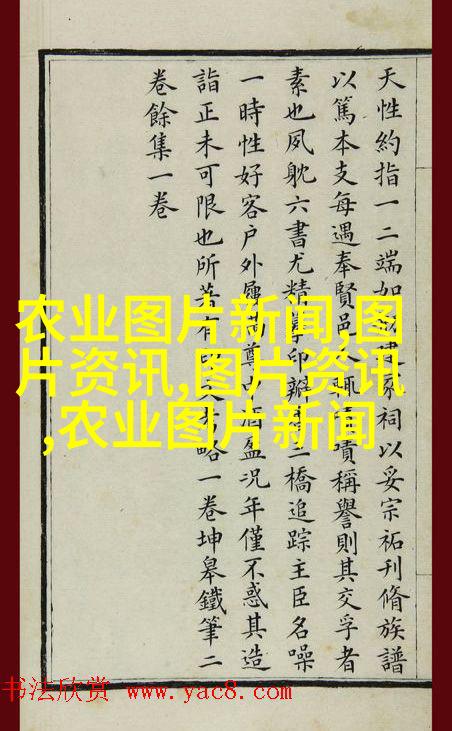 天性約指一二端如建家祠以妥宗祏刊脩族譜
以篤本支每遇奉賢邑人輒嘖稱譽則其交孚者
素也夙躭六書尤精摹印瓣三橋追踪主臣名噪
一時性好客户外屨滿尊中酒盈況年僅不惑其造
詣正未可限也所著有文考略一卷坤皋鐵筆二
卷餘集一卷
农业图片新闻,图
片资讯,图片资讯
,农业图片新闻
书法欣赏 www.yac8.com